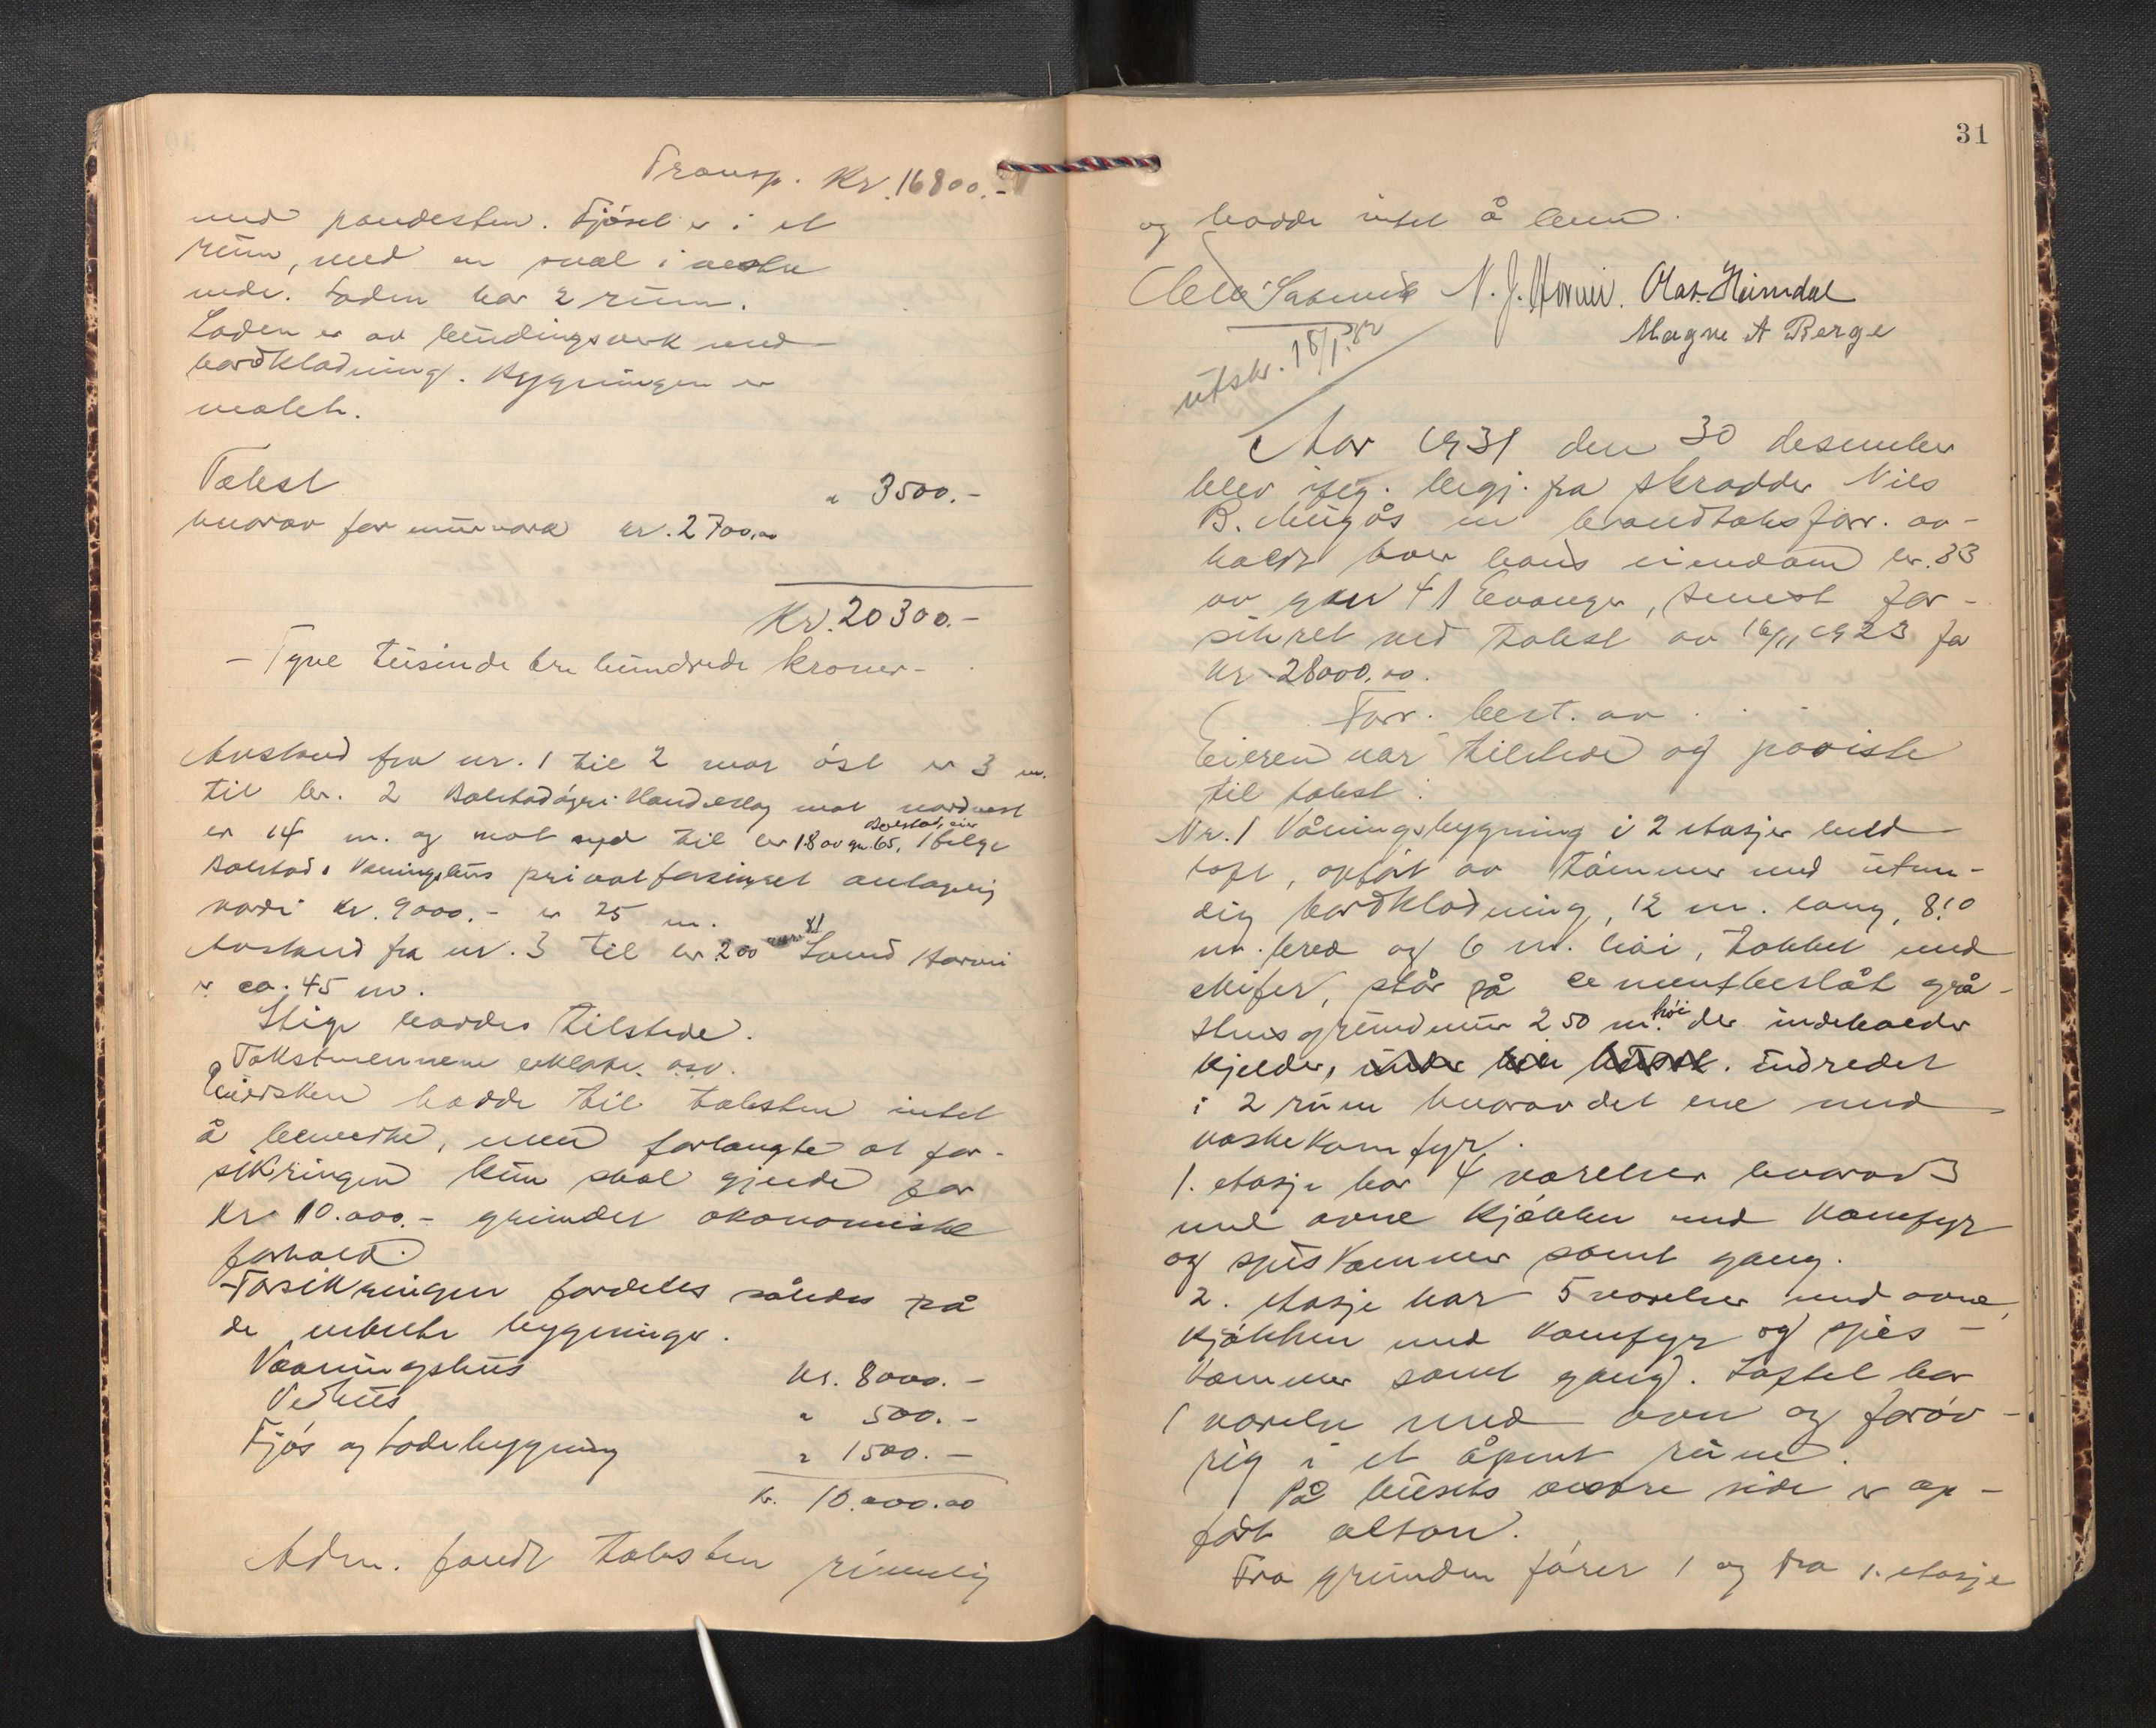 Transp. Kr. 16800.-
med Fjøset er i et
rum, med en sval i vestre
ende. Loden har 2 rum.
Loden er av bindingsverk med
bordklædning. Bygningen er
malet.
Takst " 3500.-
hvorav for murværk kr. 2700,00
Kr. 20300.-
- Tyve tusinde tre hundrede kroner -
Avstand fra nr. 1 til 2 mot øst er 3 m.
til br. 2 Bolstadøyri Handelslag mot nordvest
er 14 m. og mot syd til br 18 av gn. 65, Helge
Bolstad, eier
Bolstads Vaaningshus privatforsikret antagelig
verdi kr. 9000.- er 25 m.
Avstand fra nr. 3 til br 200 Horvei
er ca. 45 m.
Stige haddes tilstede.
Takstmennene erklærte osv.
Eiersken hadde til taksten intet
å bemerke, men forlangte at for-
sikringen kun skal gjelde for
kr 10.000.- grundet økonomiske
forhold.
Forsikringen fordeles således på
de enkelte bygninger.
Vaaningshus kr. 8000.-
Vedhus " 500.-
Fjøs og lodebygning " 1500.-
Kr. 10.000.00
Adm. fandt taksten rimelig
31
og hadde intet å bem.
N. J. Horvei. Olav Heimdal
Magne A Berge
utskr. 18/1.32
Aar 1931 den 30 desember
blev ifølg. begj. fra skrædder Nils
B. Mugås en brandtakstforr. av-
holdt over hans eiendom br. 33
av gnr 41 Evanger, senest for-
sikret ved takst av 16/11 1923 for
kr 28000,00.
Forr. best. av . . .
Eieren var tilstede og paaviste
til takst:
Nr. 1 Våningsbygning i 2 etasjer med
loft, opført av tømmer med utven-
dig bordklædning, 12 m. lang, 8.10
m. bred og 6 m. høi, tækket med
skifer, står på cementbeslåt grå-
stensgrundmur 2.50 m. høi der indeholder
kjelder, indredet
i 2 rum hvorav det ene med
vaskekomfyr.
1. etasje har 4 værelser hvorav 3
med ovne kjøkken med komfyr
og spiskammer samt gang.
2. etasje har 5 værelser med ovne,
kjøkken med komfyr og spis-
kammer samt gang. Loftet har
1 værelse med ovn og forøv-
rig i et åpent rum.
På husets østre side er op-
ført altan.
Fra grunden fører 1 og fra 1. etasje